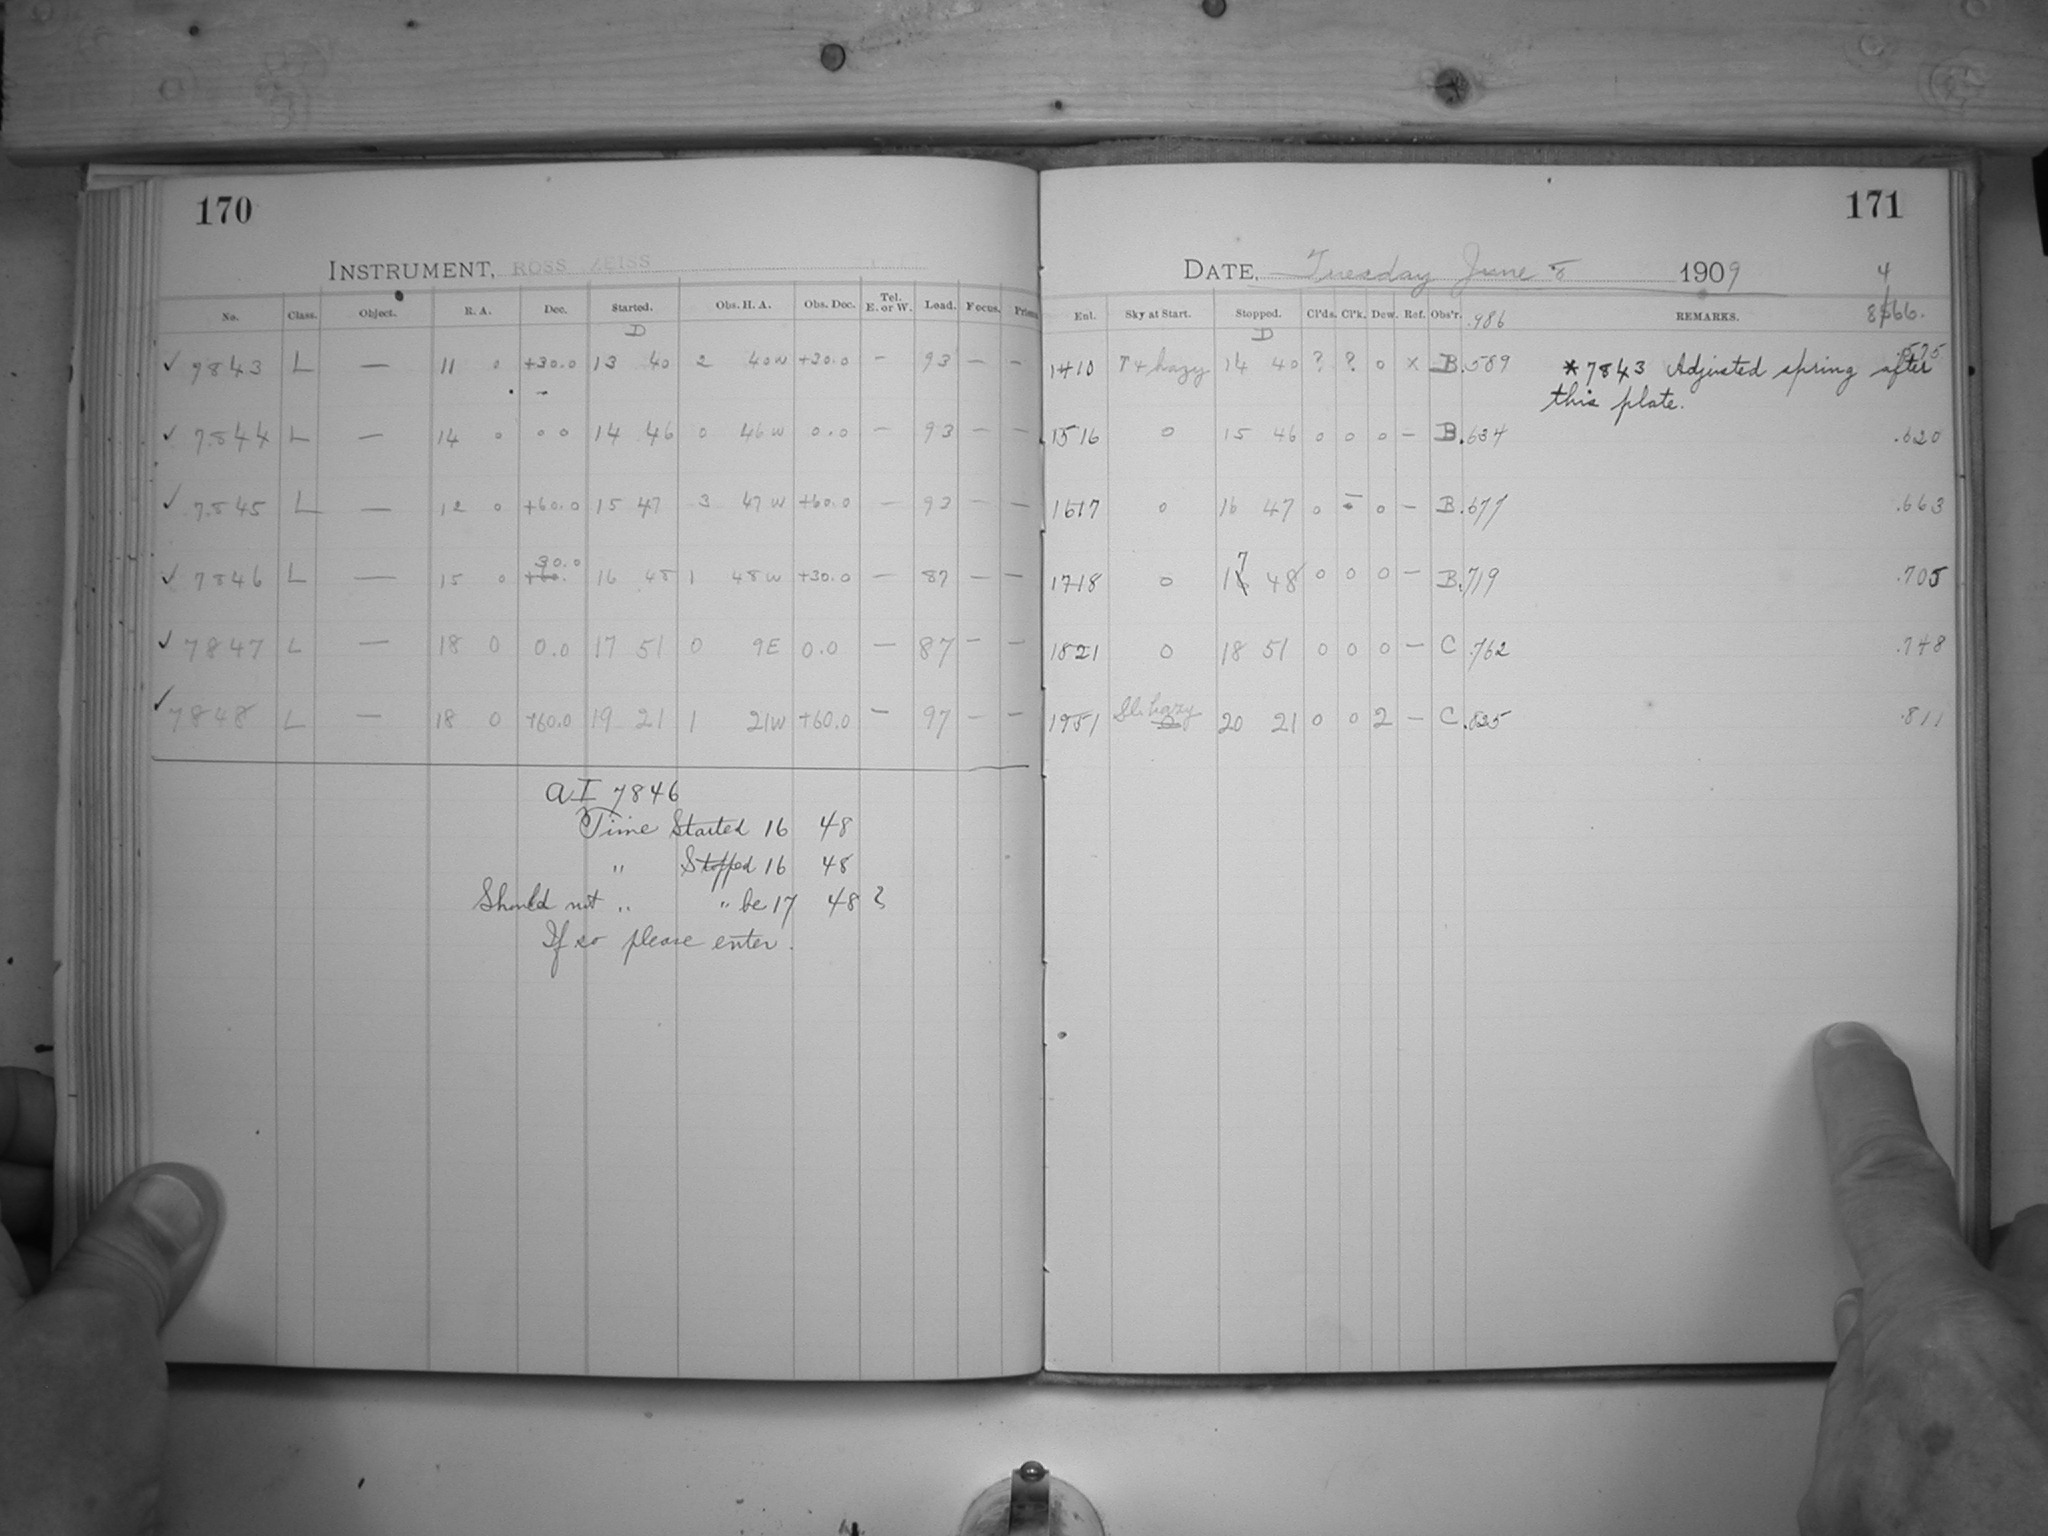 170
INSTRUMENT, ROSS ZEISS
No. Class. Object. R. A. Dec. Started. Obs. H. A. Obs. Dec. Tel. E. or W. Load. Focus. Prism
D
✓ 7843 L — 11 0 +30.0 13 40 2 40W +30.0 — 93 — —
✓ 7844 L — 14 0 0 0 14 46 0 46W 0.0 — 93 — —
✓ 7845 L — 12 0 +60.0 15 47 3 47W +60.0 — 93 — —
30.0
✓ 7846 L — 15 0 +60. 16 48 1 48W +30.0 — 87 — —
✓ 7847 L — 18 0 0.0 17 51 0 9E 0.0 — 87 — —
✓ 7848 L — 18 0 +60.0 19 21 1 21W +60.0 — 97 — —
AI 7846
Time Started 16 48
" Stopped 16 48
Should not " " be 17 48?
If so please enter.
171
DATE, Tuesday June 8 1909
4
8566.
Ent. Sky at Start. Stopped. Cl'ds. Cl'k. Dew. Ref. Obs'r. .986 REMARKS.
D
1410 hazy 14 40 ? ? 0 x B .589 .575
* 7843 Adjusted spring after
this plate.
1516 0 15 46 0 0 0 — B .634 .620
1617 0 16 47 0 0 — B .677 .663
7
1718 0 16 48 0 0 0 — B .719 .705
1821 0 18 51 0 0 0 — C .762 .748
1951 Sli. hazy 20 21 0 0 2 — C .825 .811